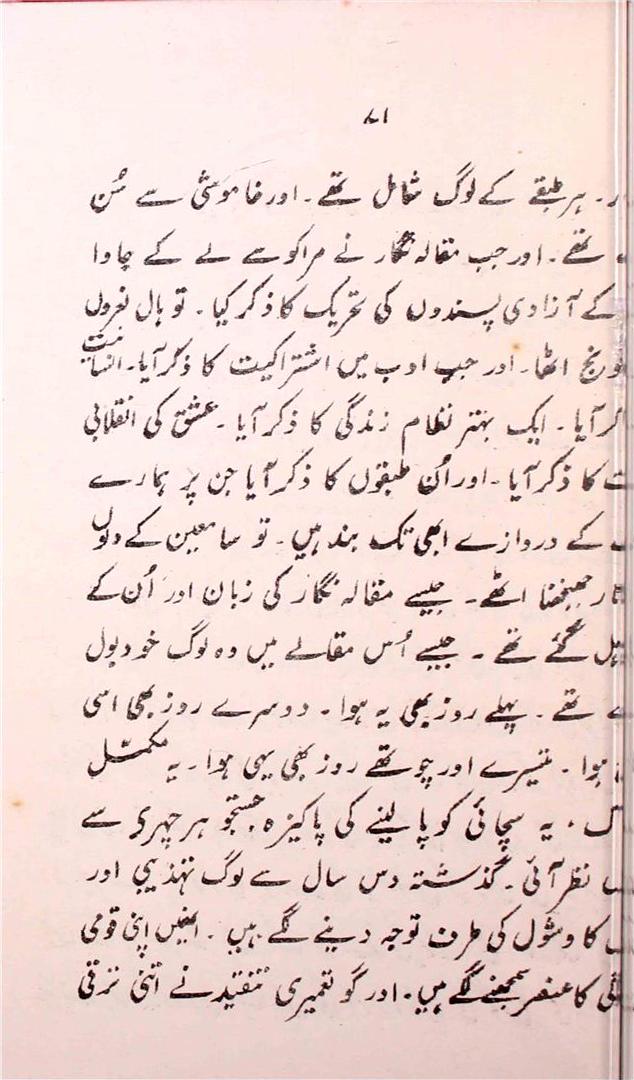 ۸۱
ر۔ ہر طبقے کے لوگ شامل تھے۔ اور خاموشی سے سُن
تھے۔ اور جب مقالہ نگار نے مراکو سے لے کے جاوا
کے آزادی پسندوں کی تحریک کا ذکر کیا۔ تو ہال نعروں
گونج اٹھا۔ اور جب ادب میں اشتراکیت کا ذکر آیا۔ انسانیت
کر آیا۔ ایک بہتر نظام زندگی کا ذکر آیا۔ عشق کی انقلابی
ت کا ذکر آیا۔ اور اُن طبقوں کا ذکر آیا جن پر ہمارے
کے دروازے ابھی تک بند ہیں۔ تو سامعین کے دلوں
ار جھنجھنا اٹھے۔ جیسے مقالہ نگار کی زبان اور اُن کے
مل گئے تھے۔ جیسے اُس مقالے میں وہ لوگ خود بول
ے تھے۔ پہلے روز بھی یہ ہوا۔ دوسرے روز بھی اسی
ہوا۔ تیسرے اور چوتھے روز بھی یہی ہوا۔ یہ مکمّل
یہ سچائی کو پا لینے کی پاکیزہ جستجو ہر چہرے سے
نظر آئی۔ گذشتہ دس سال سے لوگ تہذیبی اور
کاوشوں کی طرف توجہ دینے لگے ہیں۔ انہیں اپنی قومی
کا عنصر سمجھنے لگے ہیں۔ اور گو تعمیری تنقید نے اتنی ترقی